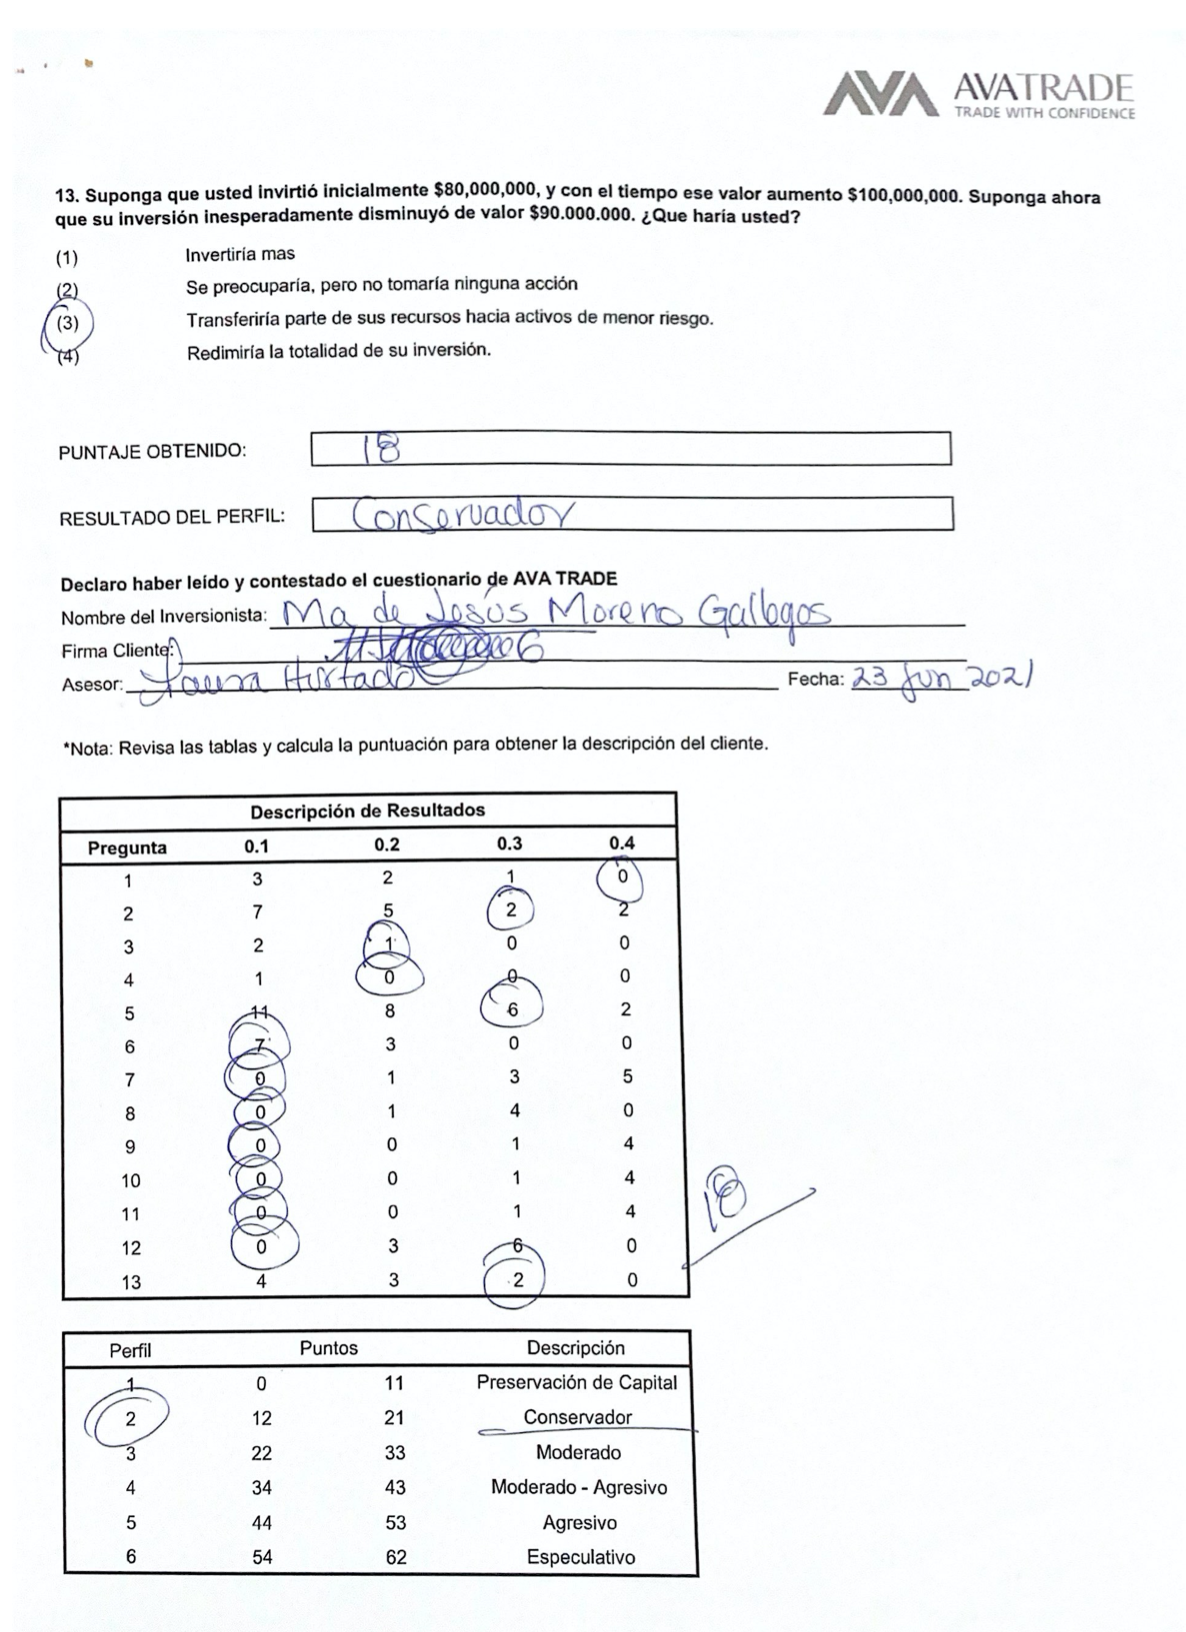 AVA AVATRADE
TRADE WITH CONFIDENCE
13. Suponga que usted invirtió inicialmente $80,000,000, y con el tiempo ese valor aumento $100,000,000. Suponga ahora
que su inversión inesperadamente disminuyó de valor $90.000.000. ¿Que haría usted?
(1) Invertiría mas
(2) Se preocuparía, pero no tomaría ninguna acción
(3) Transferiría parte de sus recursos hacia activos de menor riesgo.
(4) Redimiría la totalidad de su inversión.
PUNTAJE OBTENIDO: 18
RESULTADO DEL PERFIL: Conservador
Declaro haber leído y contestado el cuestionario de AVA TRADE
Nombre del Inversionista: Ma de Jesús Moreno Gallegos
Firma Cliente:
Asesor: Laura Hurtado Fecha: 23 Jun 2021
*Nota: Revisa las tablas y calcula la puntuación para obtener la descripción del cliente.
Descripción de Resultados
Pregunta 0.1 0.2 0.3 0.4
1 3 2 1 0
2 7 5 2 2
3 2 1 0 0
4 1 0 0 0
5 11 8 6 2
6 7 3 0 0
7 0 1 3 5
8 0 1 4 0
9 0 0 1 4
10 0 0 1 4
11 0 0 1 4
12 0 3 6 0
13 4 3 2 0
18
Perfil Puntos Descripción
1 0 11 Preservación de Capital
2 12 21 Conservador
3 22 33 Moderado
4 34 43 Moderado - Agresivo
5 44 53 Agresivo
6 54 62 Especulativo